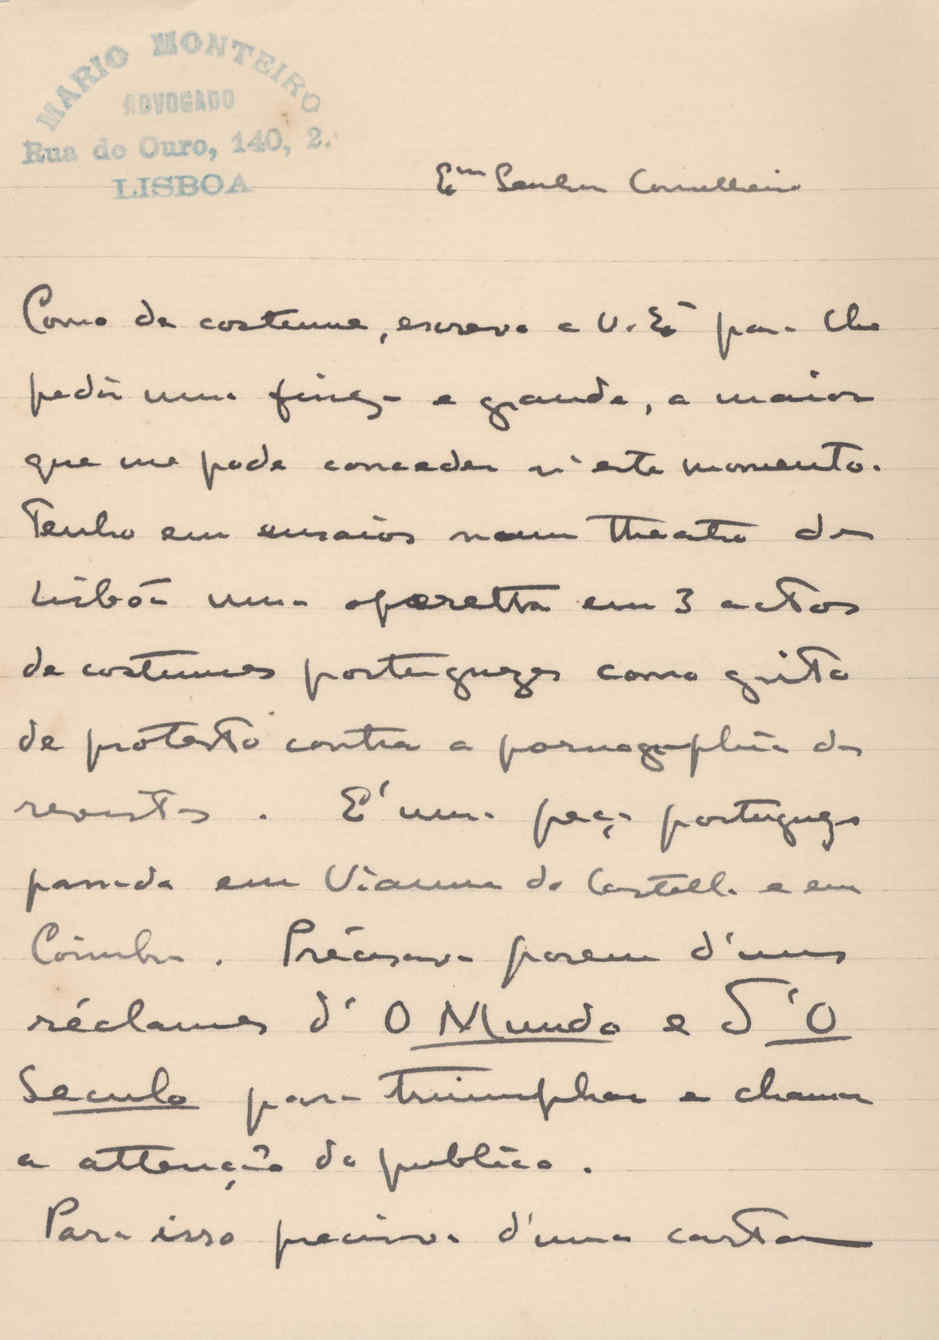 MARIO MONTEIRO
ADVOGADO
Rua do Ouro, 140, 2.
LISBOA
Exm Senhor Conselheiro
Como de costume, escrevo a V. Exª para lhe
pedir uma fineza e grande, a maior
que me pode conceder n'este momento.
Tenho em ensaios num theatro de
Lisbôa uma operetta em 3 actos
de costumes portuguezes como grito
de protesto contra a pornographia das
revistas. E' uma peça portugueza
passada em Vianna do Castello e em
Coimbra. Précisava porem d'uns
réclames d' O Mundo e d'O
Seculo para triumphar e chamar
a attenção do publico.
Para isso precisava d'uma carta